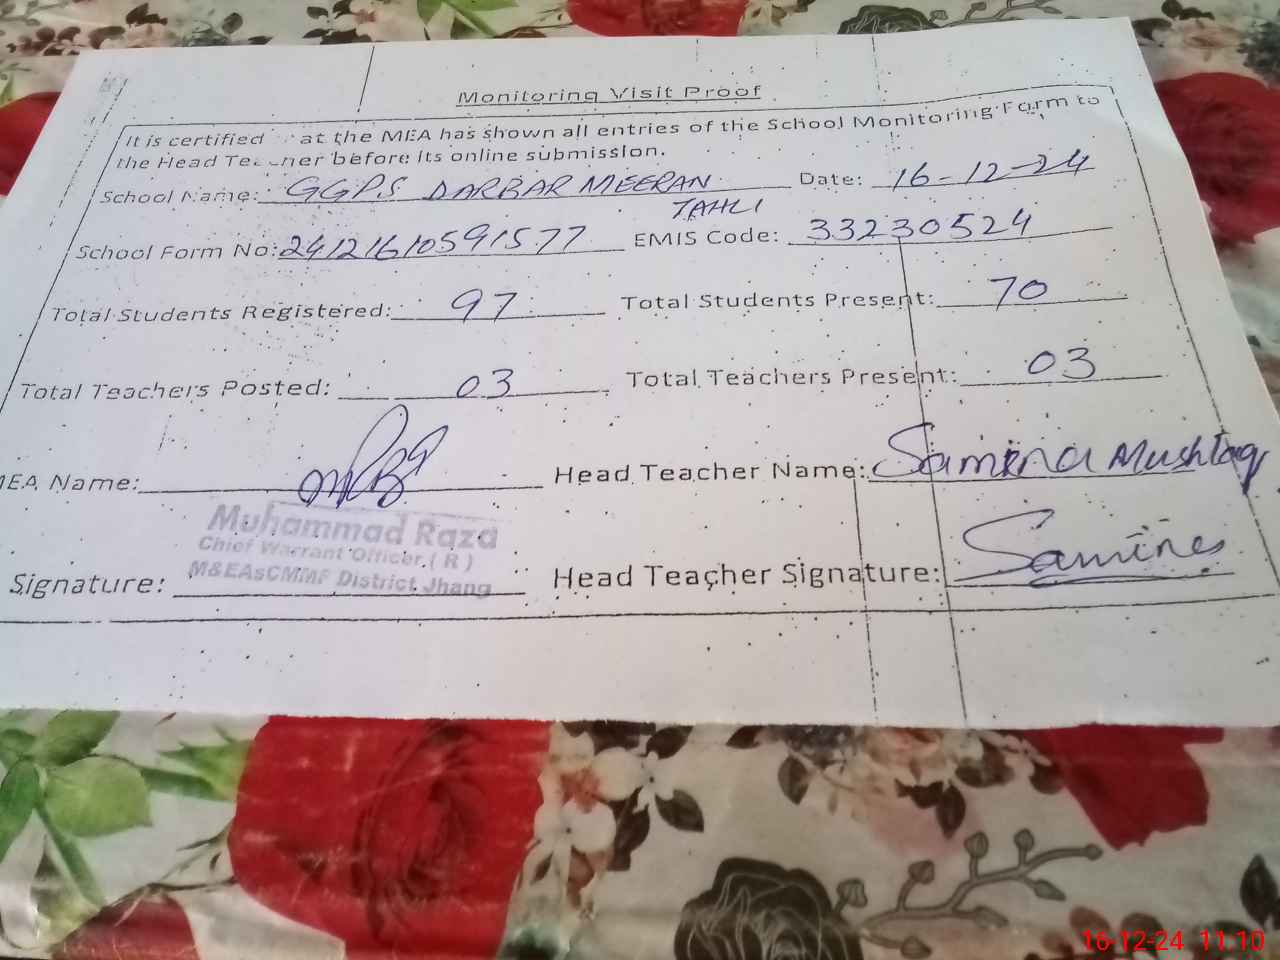 Monitoring Visit Proof
It is certified at the MEA has shown all entries of the School Monitoring Form to
the Head Teacher before its online submission.
School Name: GGPS DARBAR MEERAN Date: 16-12-24
TAHLI
School Form No: 24121610591577 EMIS Code: 33230524
Total Students Registered: 97 Total Students Present: 70
Total Teachers Posted: 03 Total Teachers Present: 03
MEA Name: Head Teacher Name: Samina Mushtaq
Muhammad Raza
Chief Warrant Officer ( R )
M&EAsCMMF District Jhang
Signature: Head Teacher Signature: Samina
16-12-24 11:10